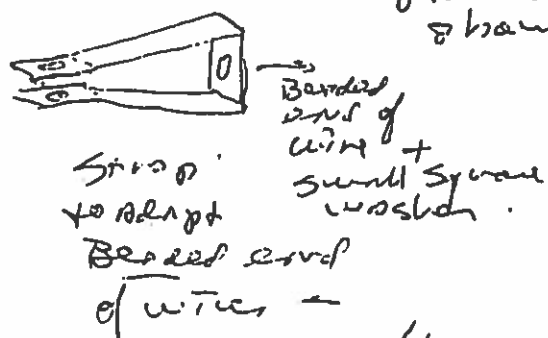 of
Beaded
end of
wire +
small square
washer.
Strap
to adapt
Beaded end
of wire -